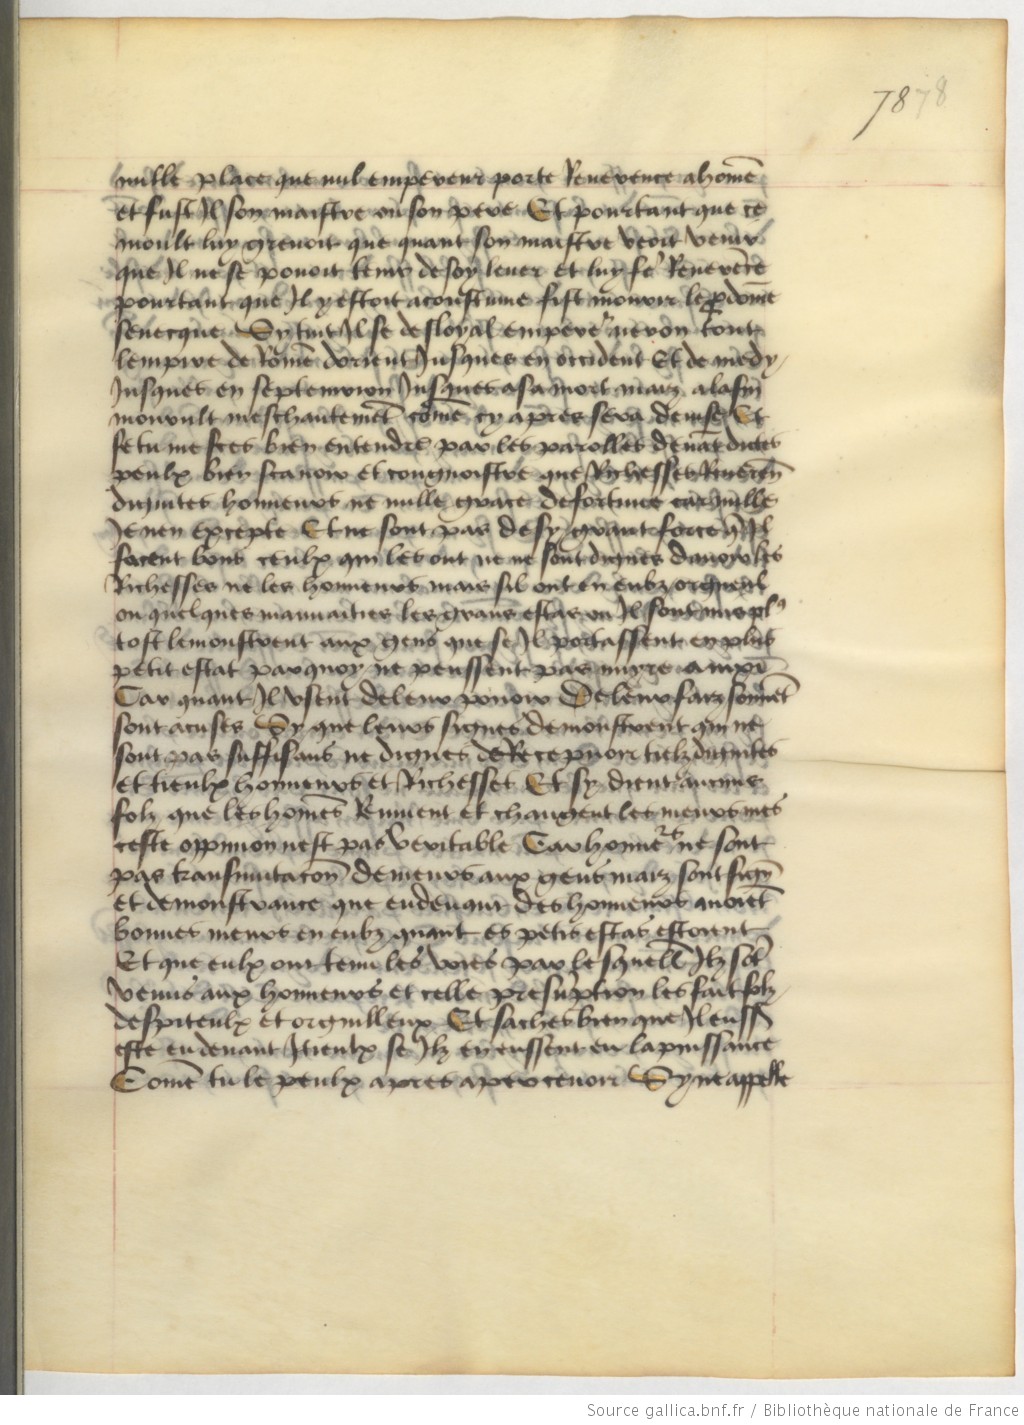 78 78
nulle place que nul empereur porte Reverence a home
Et fust Il son maistre ou son pere Et pourtant que ce
moult luy grevoit que quant son maistre veoit venir
que Il ne se povoit tenir de soy lever et luy fe Reverece
pourtant que Il y estoit acoustume fist mourir le pdome
senecque Sy tint Il se desloyal empere neron tout
lempire de Rome dorient Jusques en occident Et de midy
Jusques en septemtrion Jusques a sa mort maiz a la fin
mourult meschantemet come cy apres sera devise Et
se tu me sces bien entendre par les parolles devat dictes
peulx bien scavoir et congnoistre que Richesses Reveren
dignites honneurs ne nulle grace de fortune car nulle
Je nen Excepte Et ne sont pas de sy grant force q Il
facent bons ceulx qui les ont ne ne sont dignes davoir les
Richesses ne les honneurs mais sil ont en eubz orgueil
ou quelques mauvaities les grans estas ou Il sont mis pl
tost le monstrent aux gens que se Il portassent en plus
petit estat par quoy ne peussent pas nuyre
Car quant Il usent de leur povoir De leur faiz souvet
sont acuses Sy que leurs signes demonstrent qui ne
sont pas suffisans ne dignes de Recepvoir tielz dignites
Et tieulx honneurs et Richesses Et sy dient aucuns
folz que les homes Remuent et changent les meurs mes
ceste oppinion nest pas veritable Car honneurs ne sont
pas transmutacon de meurs aux gens maiz sont sign
et demonstrance que en devant des honneurs avoiet
bonnes meurs en eubz quant es petis estas estoient
Et que eulx ont tenu les voies par lesquelle Ilz sot
venus aux honneurs et celle presuption les fait folz
despiteulx et orguilleux Et saches bien que Il euss
este en devant Itieulx se Ilz en eussent eu la puissance
Come tu le peulx apres apercevoir Sy ne appelle
Source gallica.bnf.fr / Bibliothèque nationale de France